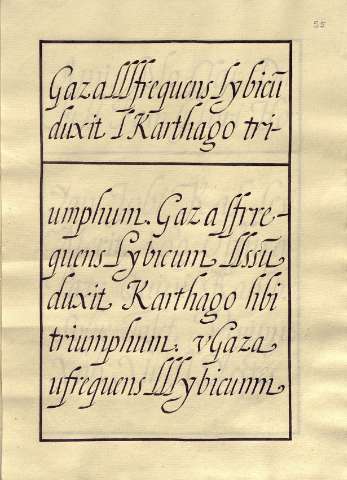 55
Gaza lſſfrequens Lybicū
duxit I Karthago tri-
umphum. Gaza ſſrre-
quens Lybicum lſsū
duxit Karthago libi
triumphum. vGaza
ufrequens lſſybicumm